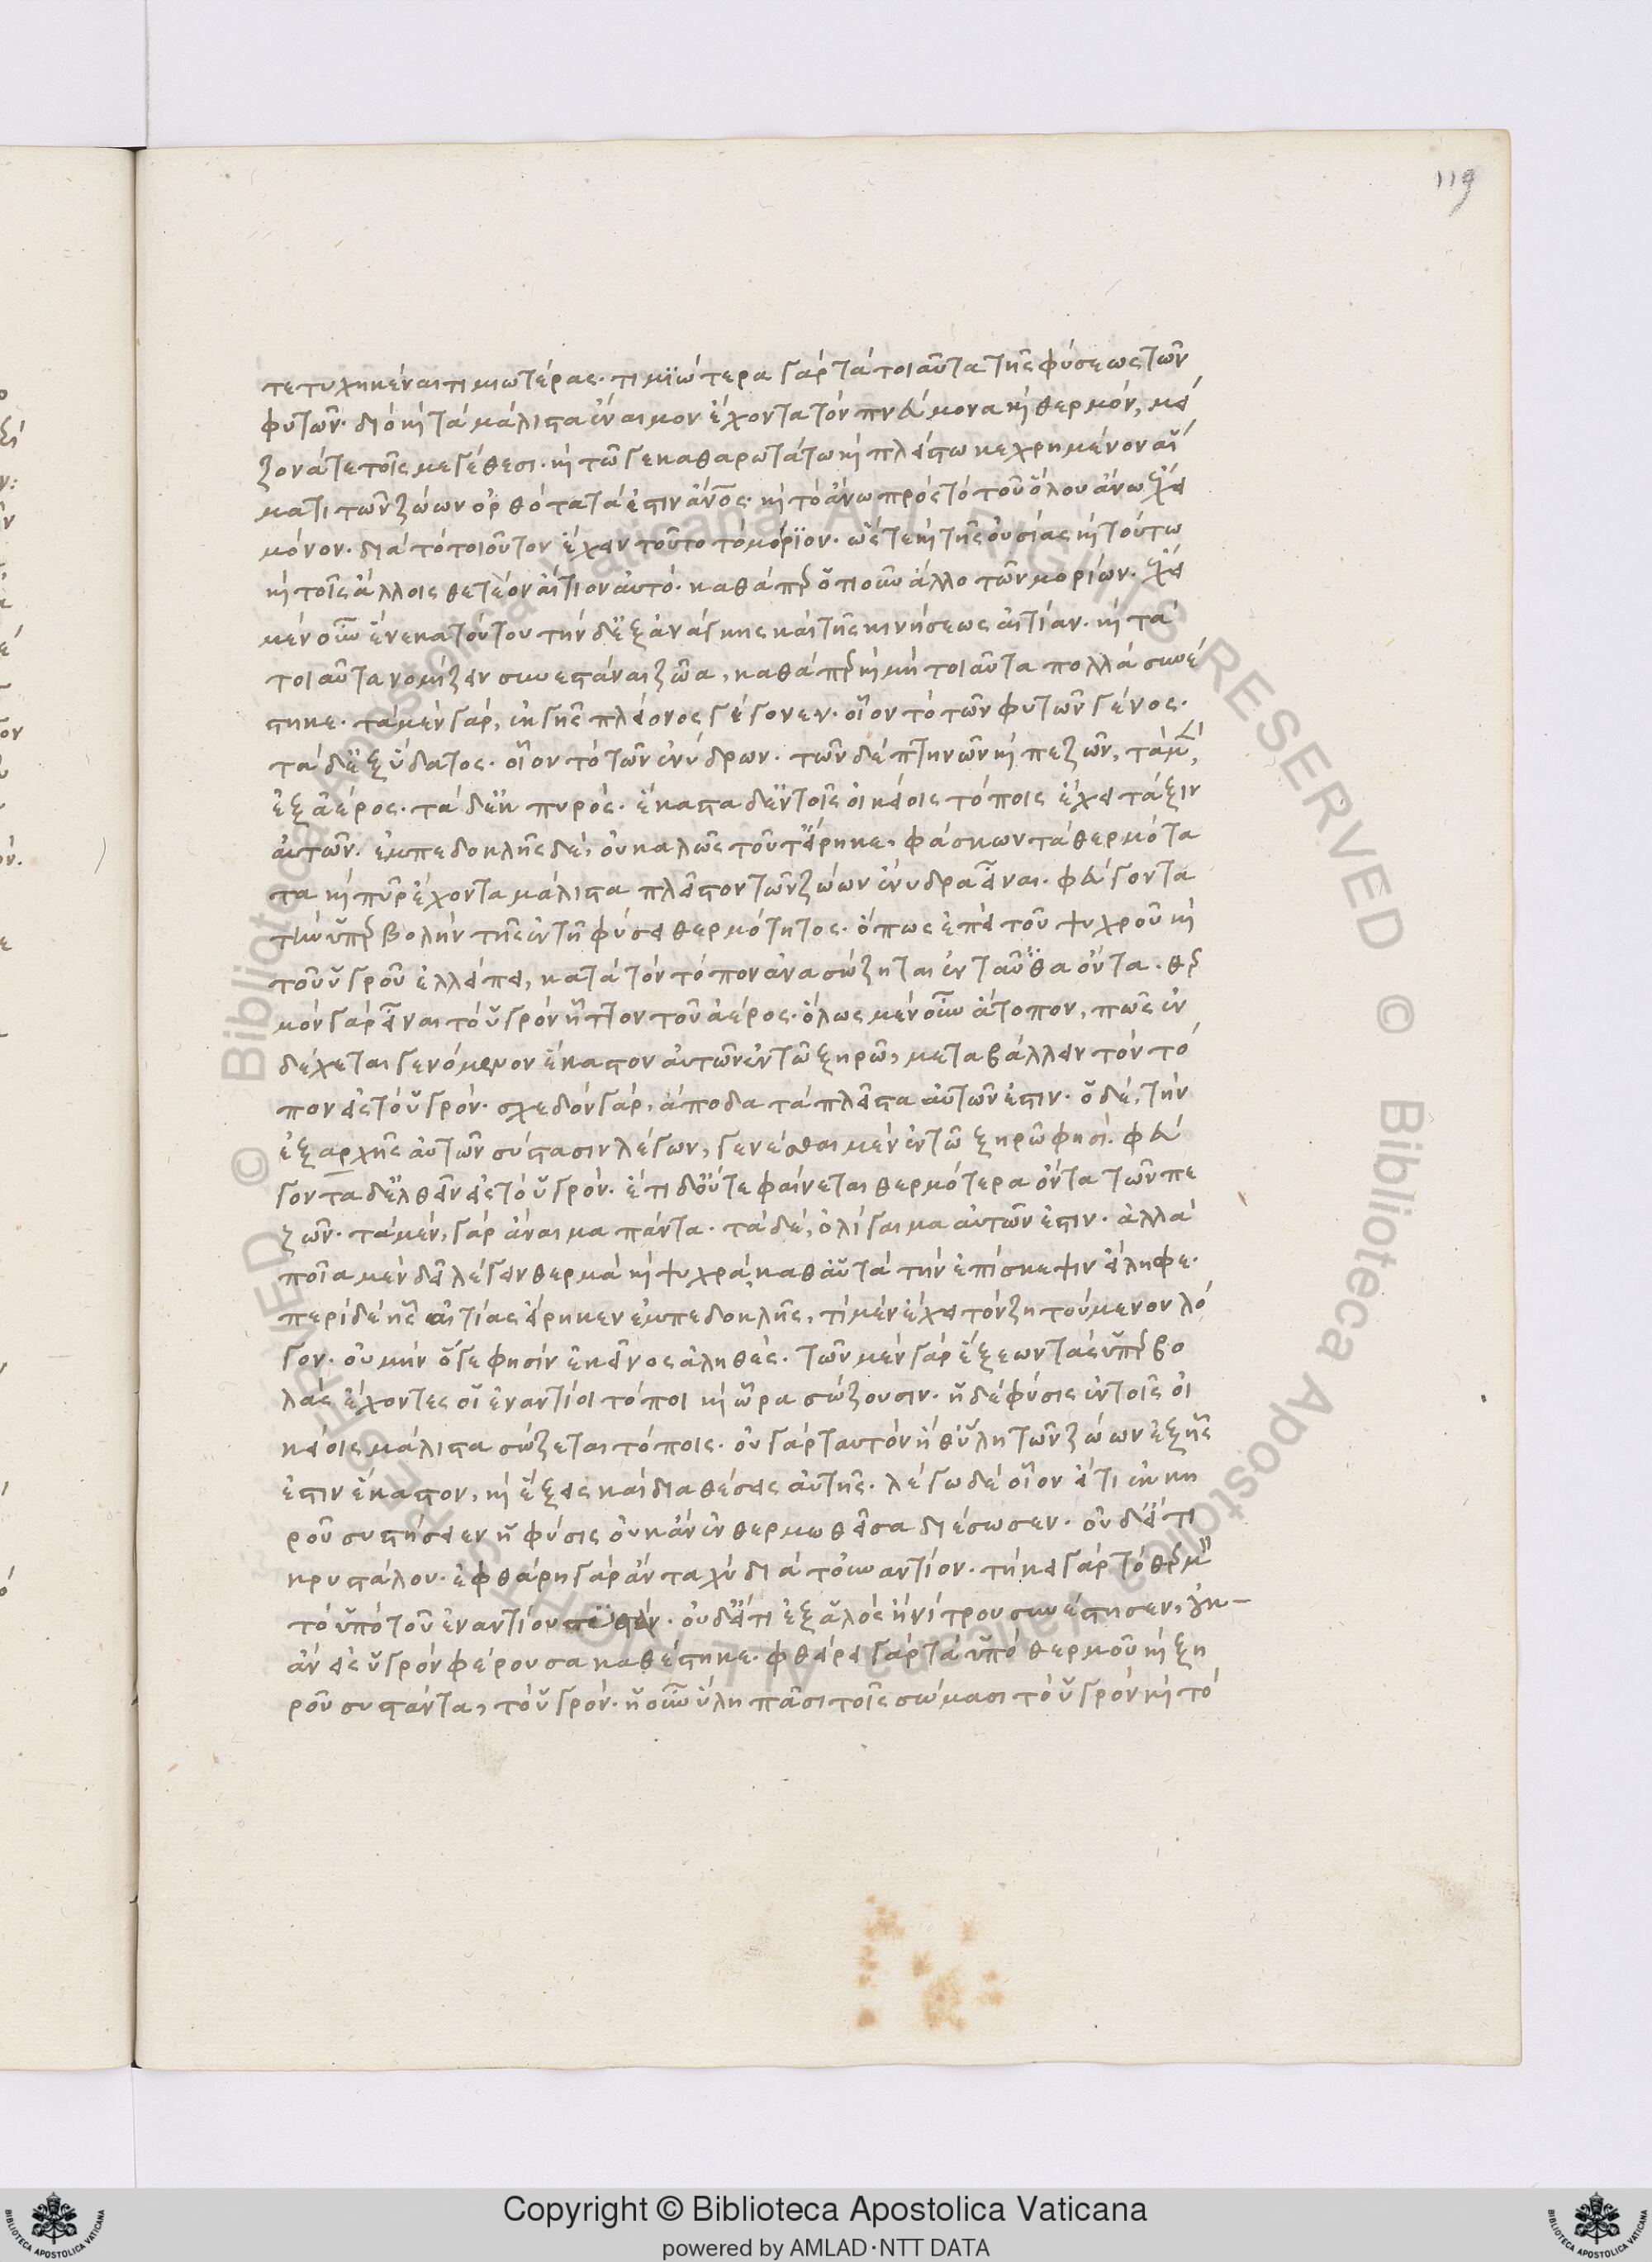 119
τετυχηκέναι τιμιωτέρας· τιμϊώτερα γὰρ τὰ τοιαῦτα τῆς φύσεως τῶν
φυτῶν· διὸ κὶ τὰ μάλιστα ἔναιμον ἔχοντα τὸν πνεύμονα κὶ θερμόν, μεί
ζονά τε τοῖς μεγέθεσι· κὶ τῶ γε καθαρωτάτω κὶ πλείστω κεχρημένον αἵ
ματι τῶν ζώων ὀρθότατά ἐστιν ἄνος· κὶ τὸ ἄνω πρὸς τὸ τοῦ ὅλου ἄνω ἔχει
μόνον· διὰ τὸ τοιοῦτον ἔχειν τοῦτο τὸ μόρϊον· ὥστε κὶ τῆς οὐσίας κὶ τούτω
κὶ τοῖς ἄλλοις θετέον αἴτιον αὐτό· καθάπερ ὁτιοῦν ἄλλο τῶν μορίων· ἔχει
μὲν οὖν ἕνεκα τούτου τὴν δ' ἐξ ἀνάγκης καὶ τῆς κινήσεως αἰτίαν· κὶ τὰ
τοιαῦτα νομίζειν συνεστάναι ζῶα, καθάπερ κὶ μὴ τοιαῦτα πολλὰ συνέ
στηκε· τὰ μὲν γάρ, ἐκ γῆς πλείονος γέγονεν· οἷον τὸ τῶν φυτῶν γένος·
τὰ δ' ἐξ ὕδατος· οἷον τὸ τῶν ἐνύδρων· τῶν δὲ πτηνῶν κὶ πεζῶν, τὰ μὲν,
ἐξ ἀέρος· τὰ δ' ἐκ πυρός· ἕκαστα δ' ἐν τοῖς οἰκείοις τόποις ἔχει τάξιν
αὐτῶν· ἐμπεδοκλῆς δὲ, οὐ καλῶς τοῦτ' εἴρηκε, φάσκων τὰ θερμότα
τα κὶ πῦρ ἔχοντα μάλιστα πλεῖστον τῶν ζώων ἔνυδρα εἶναι· φεύγοντα
τὴν ὑπερβολὴν τῆς ἐν τῆ φύσει θερμότητος· ὅπως ἐπεὶ τοῦ ψυχροῦ κὶ
τοῦ ὑγροῦ ἐλλείπει, κατὰ τὸν τόπον ἀνασώζηται ἐνταῦθα ὄντα· θερ
μὸν γὰρ εἶναι τὸ ὑγρὸν ἧττον τοῦ ἀέρος· ὅλως μὲν οὖν ἄτοπον, πῶς ἐν
δέχεται γενόμενον ἕκαστον αὐτῶν ἐν τῶ ξηρῶ, μεταβάλλειν τὸν τό
πον εἰς τὸ ὑγρόν· σχεδὸν γάρ, ἄποδα τὰ πλεῖστα αὐτῶν ἐστιν· ὁ δὲ, τὴν
ἐξαρχῆς αὐτῶν σύστασιν λέγων, γενέσθαι μὲν ἐν τῶ ξηρῶ φησί· φεύ
γοντα δ' ἐλθεῖν εἰς τὸ ὑγρόν· ἔτι δ' οὔτε φαίνεται θερμότερα ὄντα τῶν πε
ζῶν· τὰ μὲν, γὰρ ἄναιμα πάντα· τὰ δὲ, ὀλίγαιμα αὐτῶν ἐστιν· ἀλλὰ
ποῖα μὲν δεῖ λέγειν θερμὰ κὶ ψυχρὰ, καθ' αὑτὰ τὴν ἐπίσκεψιν εἴληφε·
περὶ δὲ ἧς αἰτίας εἴρηκεν ἐμπεδοκλῆς, τὶ μὲν ἔχει τὸν ζητούμενον λό
γον· οὐ μὴν ὅ γε φησὶν ἐκεῖνος ἀληθές· τῶν μὲν γὰρ ἕξεων τὰς ὑπερβο
λὰς ἔχοντες οἱ ἐναντίοι τόποι κὶ ὧρα σώζουσιν· ἡ δὲ φύσις ἐν τοῖς οἰ
κείοις μάλιστα σώζεται τόποις· οὐ γὰρ ταυτὸν ἥ θ' ὕλη τῶν ζώων ἐξ ἧς
ἐστιν ἕκαστον, κὶ ἕξεις καὶ διαθέσεις αὐτῆς· λέγω δὲ οἷον εἴ τι ἐκ κη
ροῦ συστήσειεν ἡ φύσις οὐκ ἂν ἐν θερμῶ θεῖσα διέσωσεν· οὐδ' εἴ τι
κρυστάλου· ἐφθάρη γὰρ ἂν ταχὺ διὰ τὸ ἐναντίον· τήκει γὰρ τὸ θερμὸν
τὸ ὑπὸ τοῦ ἐναντίου · οὐδ' εἴ τι ἐξ ἁλὸς ἢ νίτρου συνέστησεν, οὐκ
ἂν εἰς ὑγρὸν φέρουσα καθέστηκε· φθείρει γὰρ τὰ ὑπὸ θερμοῦ κὶ ξη
ροῦ συστάντα, τὸ ὑγρόν· ἡ οὖν ὕλη πᾶσι τοῖς σώμασι τὸ ὑγρὸν κὶ τὸ
Copyright © Biblioteca Apostolica Vaticana
powered by AMLAD·NTT DATA